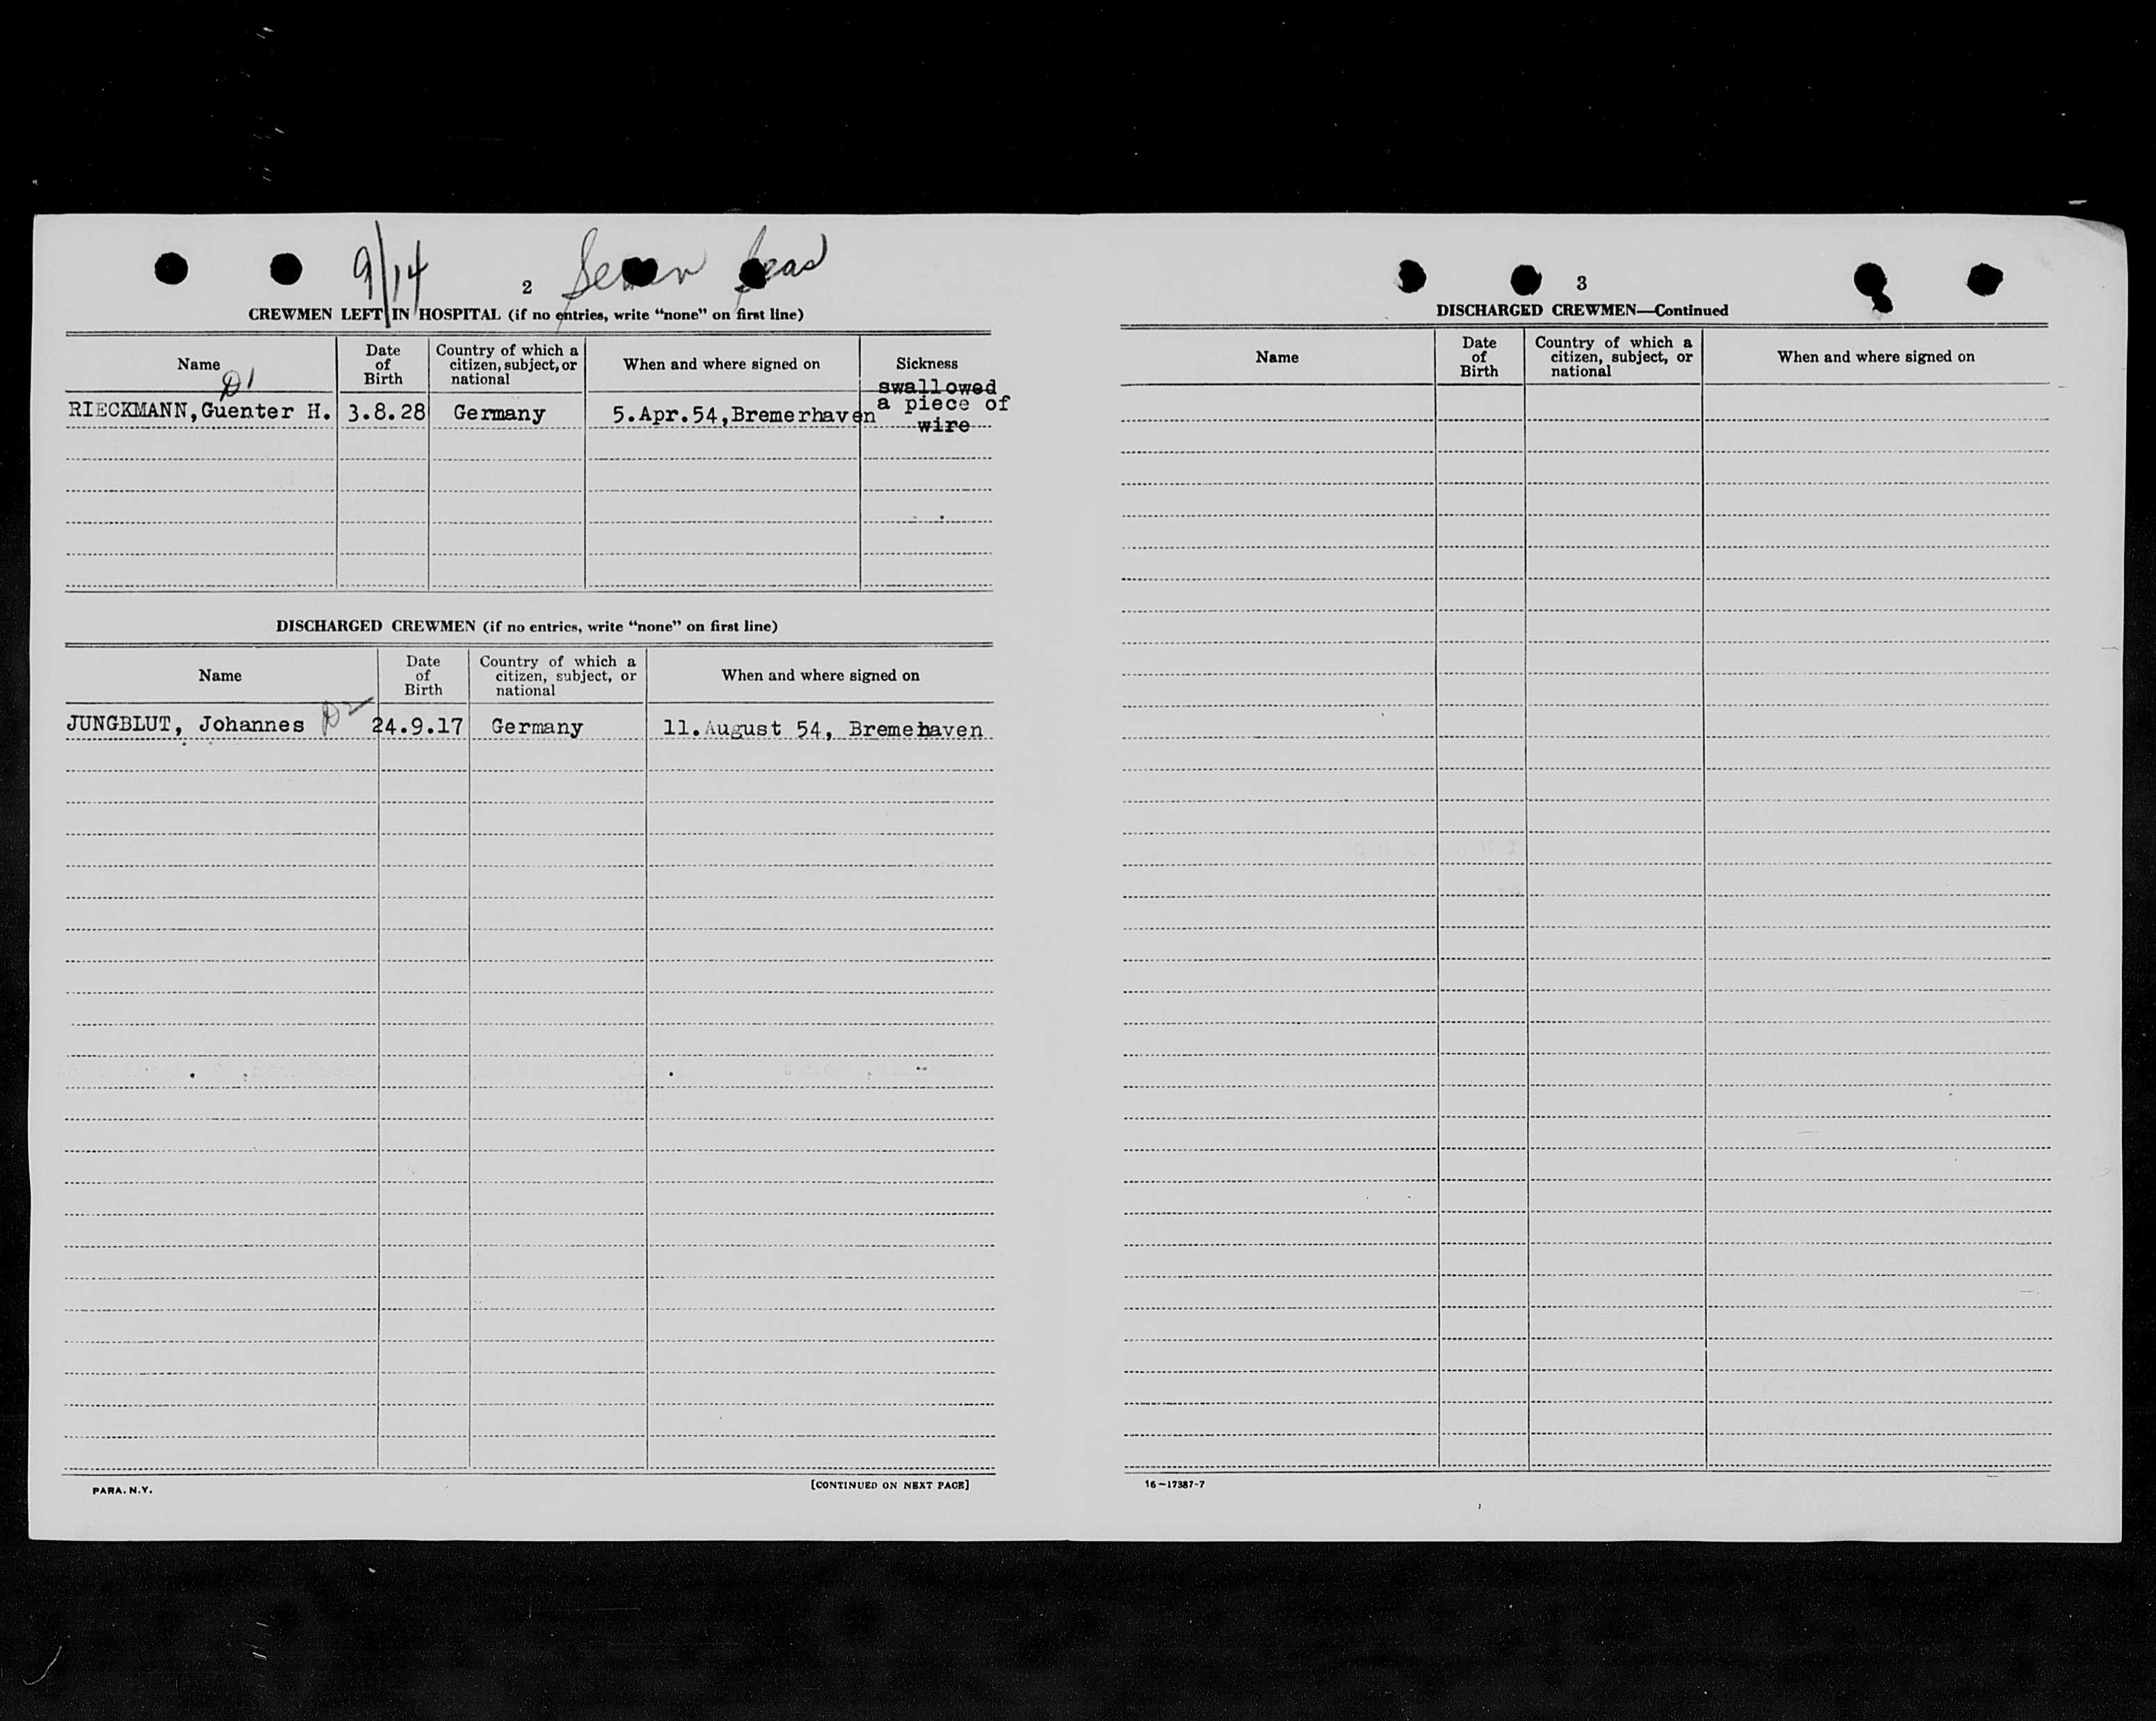 9/14
2
Seven Seas
CREWMEN LEFT IN HOSPITAL (if no entries, write “none” on first line)
Name
Date of Birth
Country of which a citizen, subject, or national
When and where signed on
Sickness
D1
RIECKMANN,Guenter H. 3.8.28 Germany 5.Apr.54,Bremerhaven swallowed
a piece of
wire
DISCHARGED CREWMEN (if no entries, write “none” on first line)
Name
Date of Birth
Country of which a citizen, subject, or national
When and where signed on
JUNGBLUT, Johannes D2 24.9.17 Germany 11.August 54, Bremehaven
PARA. N.Y.
[CONTINUED ON NEXT PAGE]
3
DISCHARGED CREWMEN—Continued
Name
Date of Birth
Country of which a citizen, subject, or national
When and where signed on
16—17387-7